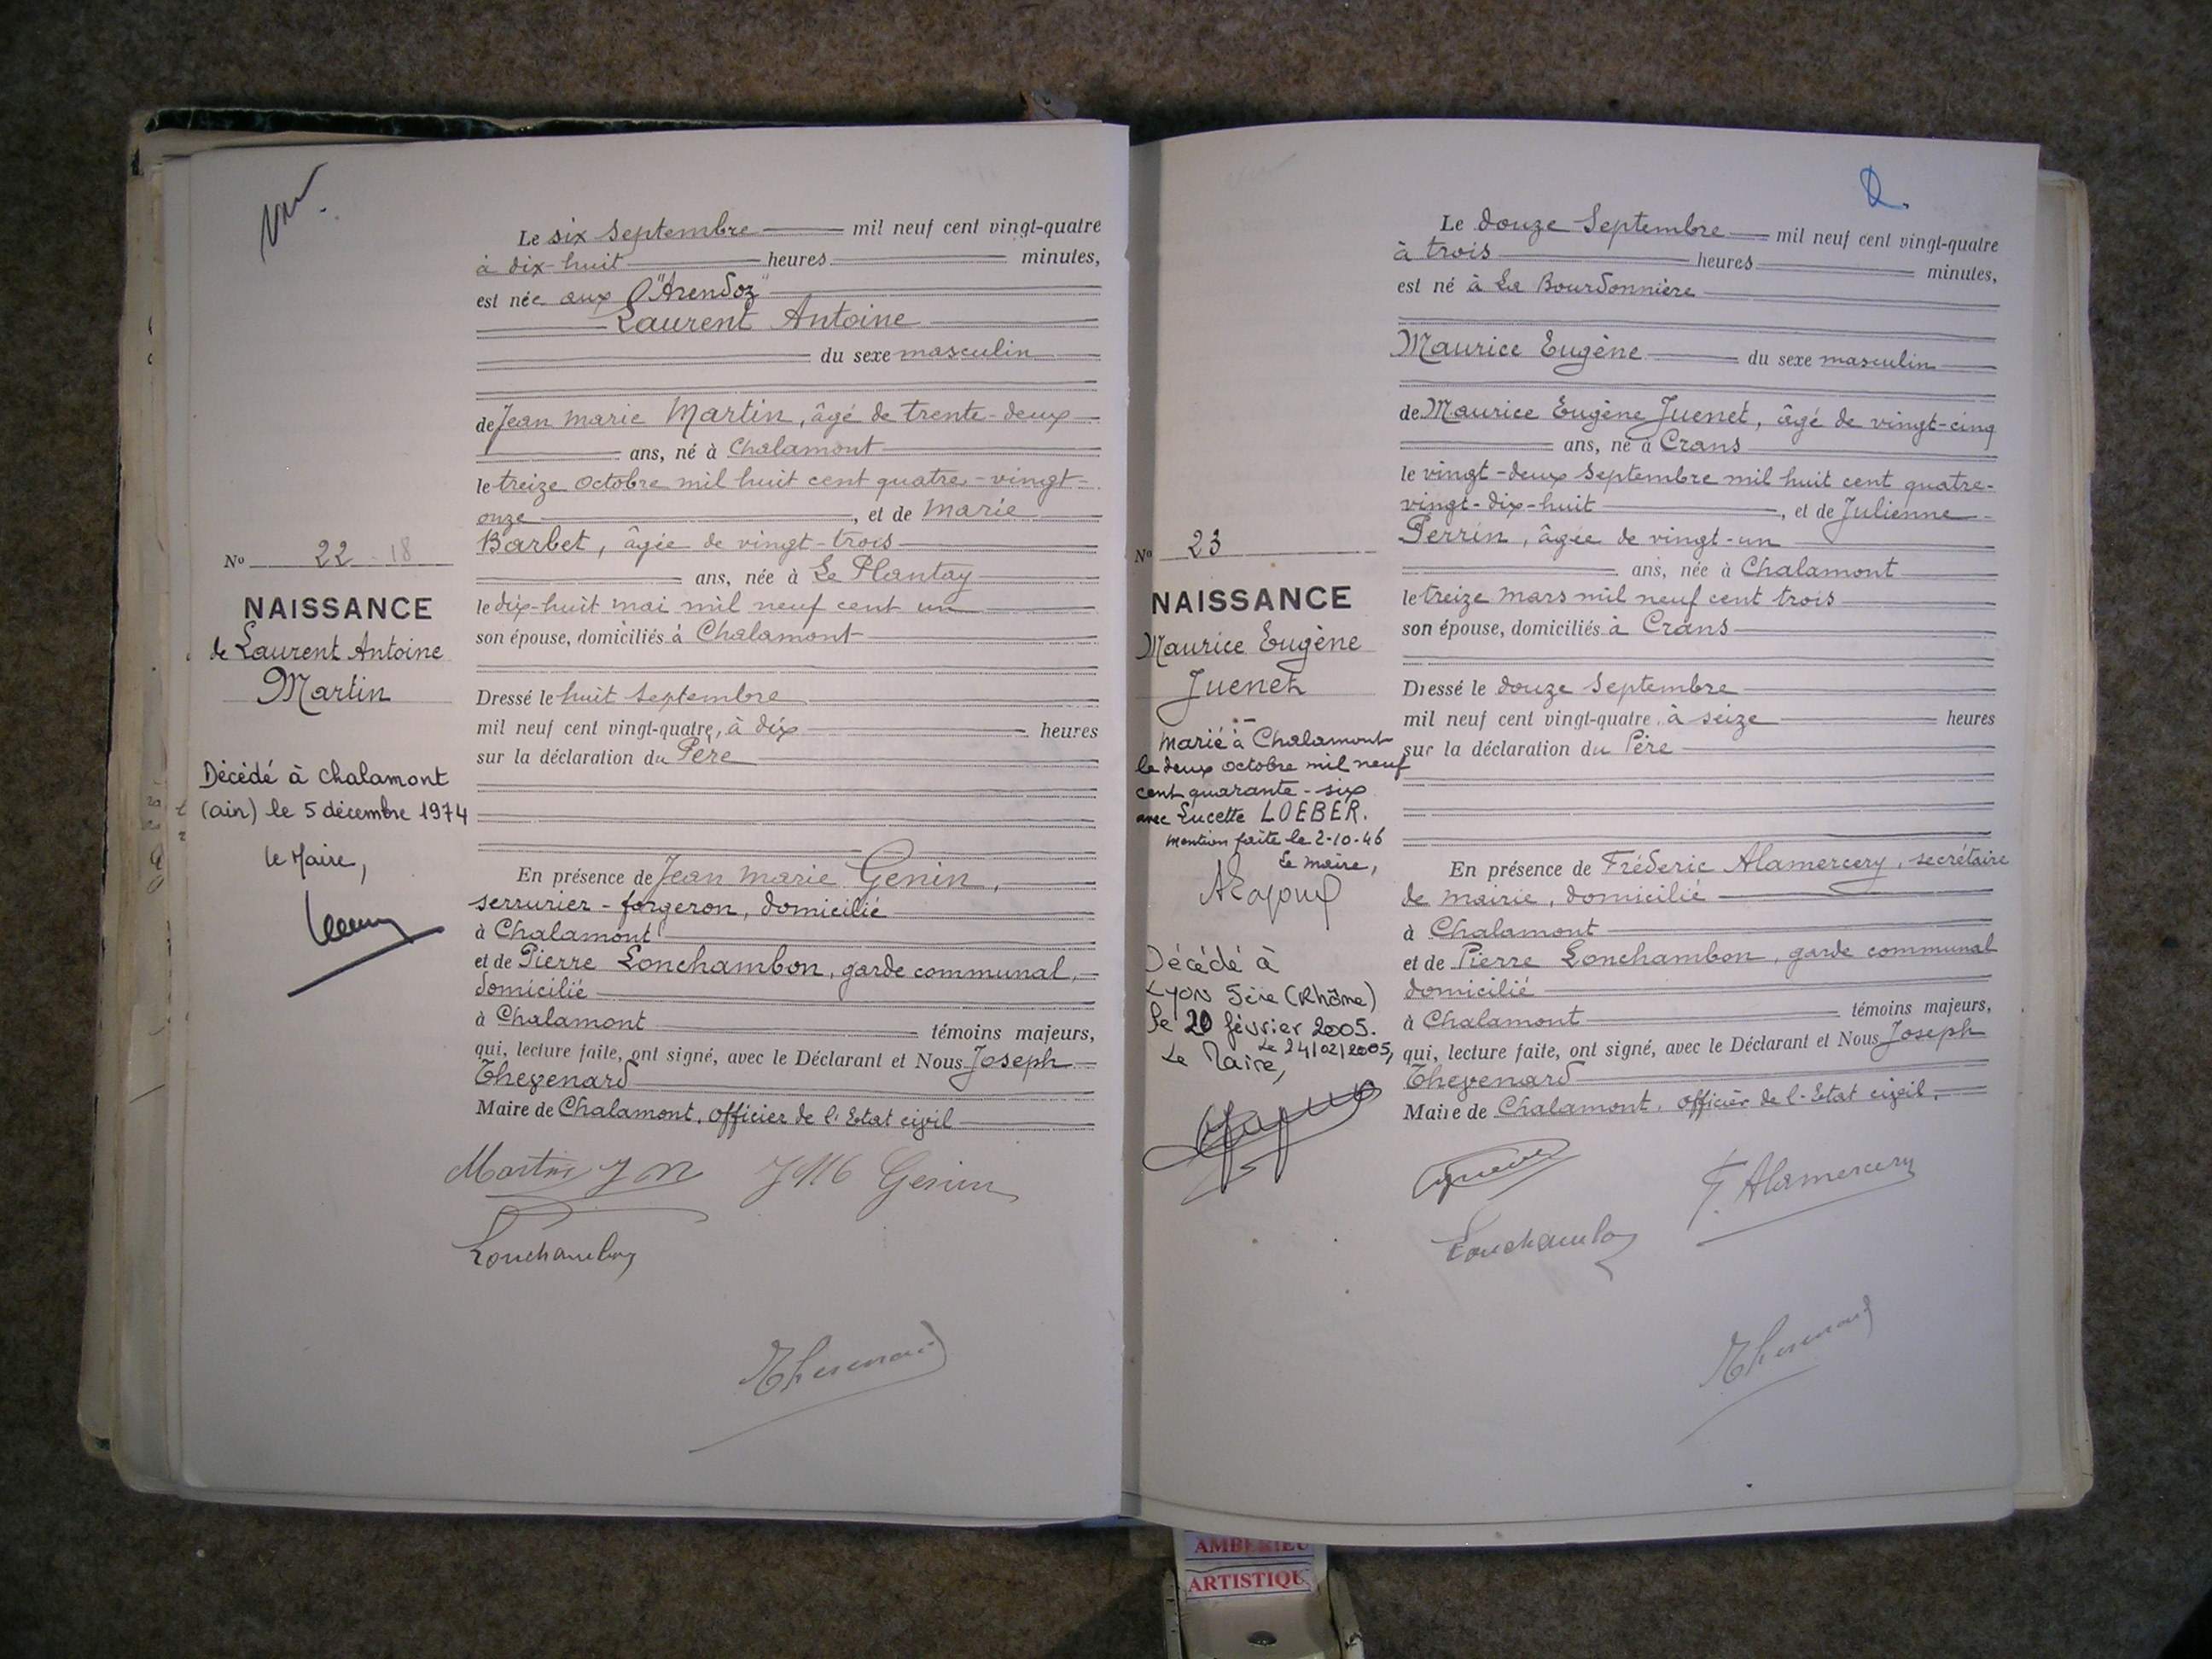 No 22 - 18
NAISSANCE
de Laurent Antoine
Martin
Décédé à Chalamont
(ain) le 5 décembre 1974
le Maire,
Le six Septembre mil neuf cent vingt-quatre
à dix-huit heures minutes,
est née aux
Laurent Antoine
du sexe masculin
de Jean Marie Martin, âgé de trente-deux
ans, né à Chalamont
le treize Octobre mil huit cent quatre-vingt-
onze, et de Marie
Barbet, âgée de vingt-trois
ans, née à Le Plantay
le dix-huit mai mil neuf cent un
son épouse, domiciliés à Chalamont
Dressé le huit Septembre
mil neuf cent vingt-quatre, à dix heures
sur la déclaration du Père
En présence de Jean Marie Genin,
serrurier-forgeron, domicilié
à Chalamont
et de Pierre Lonchambon, garde communal,
domicilié
à Chalamont témoins majeurs,
qui, lecture faite, ont signé, avec le Déclarant et Nous Joseph
Thevenard
Maire de Chalamont, officier de l'Etat civil
Martin J M JM Genin
Lonchambon
Thevenard
No 23
NAISSANCE
Maurice Eugène
Juenet
Marié à Chalamont
le deux octobre mil neuf
cent quarante-six
avec Lucette LOEBER.
Mention faite le 2-10-46
Le maire,
Décédé à
LYON 5ème (Rhône)
le 20 février 2005.
Le 24/02/2005,
Le Maire,
Le douze Septembre mil neuf cent vingt-quatre
à trois heures minutes,
est né à La Bourdonnière
Maurice Eugène du sexe masculin
de Maurice Eugène Juenet, âgé de vingt-cinq
ans, né à Crans
le vingt-deux Septembre mil huit cent quatre-
vingt-dix-huit, et de Julienne
Perrin, âgée de vingt-un
ans, née à Chalamont
le treize Mars mil neuf cent trois
son épouse, domiciliés à Crans
Dressé le douze Septembre
mil neuf cent vingt-quatre, à seize heures
sur la déclaration du Père
En présence de Fréderic Alamercery, secrétaire
de mairie, domicilié
à Chalamont
et de Pierre Lonchambon, garde communal
domicilié
à Chalamont témoins majeurs,
qui, lecture faite, ont signé, avec le Déclarant et Nous Joseph
Thevenard
Maire de Chalamont, officier de l'Etat civil,
F. Alamercery
Lonchambon
Thevenard
AMBERIEU
ARTISTIQU